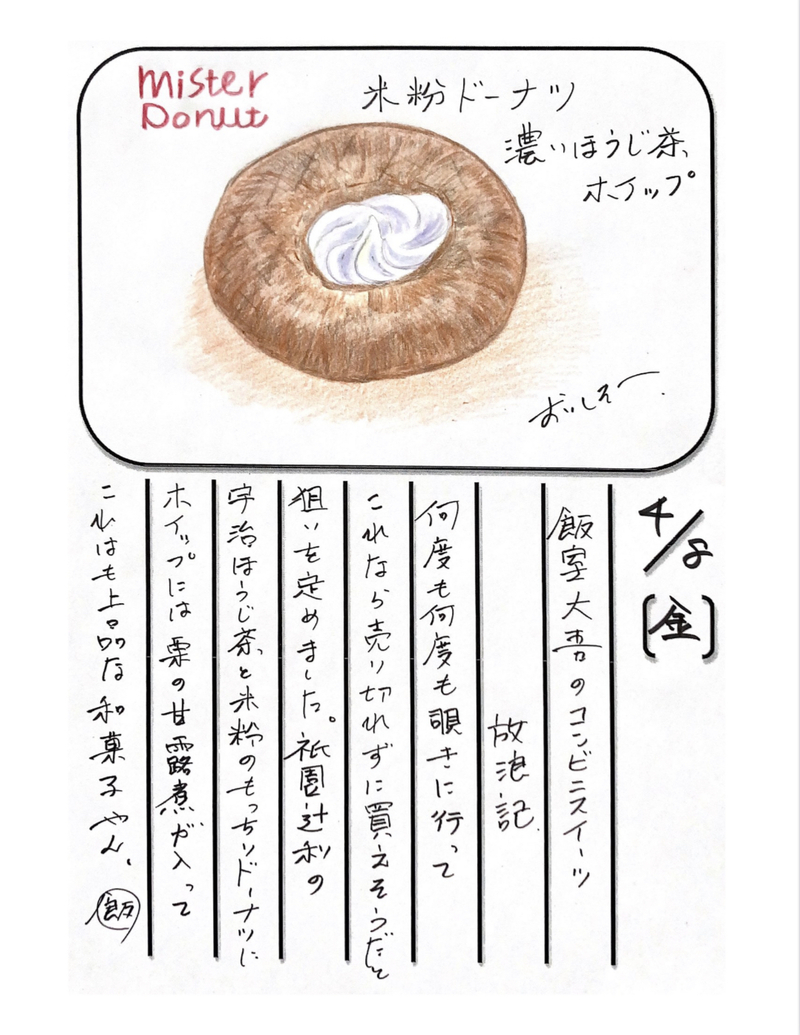 Mister
Donut
米粉ドーナツ
濃いほうじ茶
ホイップ
おいしそー
4/8
[金]
飯室大吾のコンビニスイーツ
放浪記
何度も何度も覗きに行って
これなら売り切れずに買えそうだと
狙いを定めました。祇園辻利の
宇治ほうじ茶と米粉のもっちりドーナツに
ホイップには栗の甘露煮が入って
これはも上品な和菓子やん。
飯